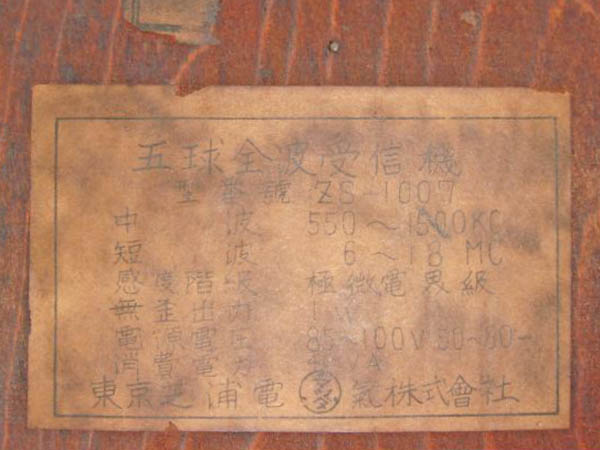 五球全波受信機
型番號 ZS-1007
中波 550～1500KC
短波 6～18 MC
感度階級 極微電界級
無歪出力 1W
電源電圧 85～100V 50～60～
消費電力 VA
東京芝浦電氣株式會社